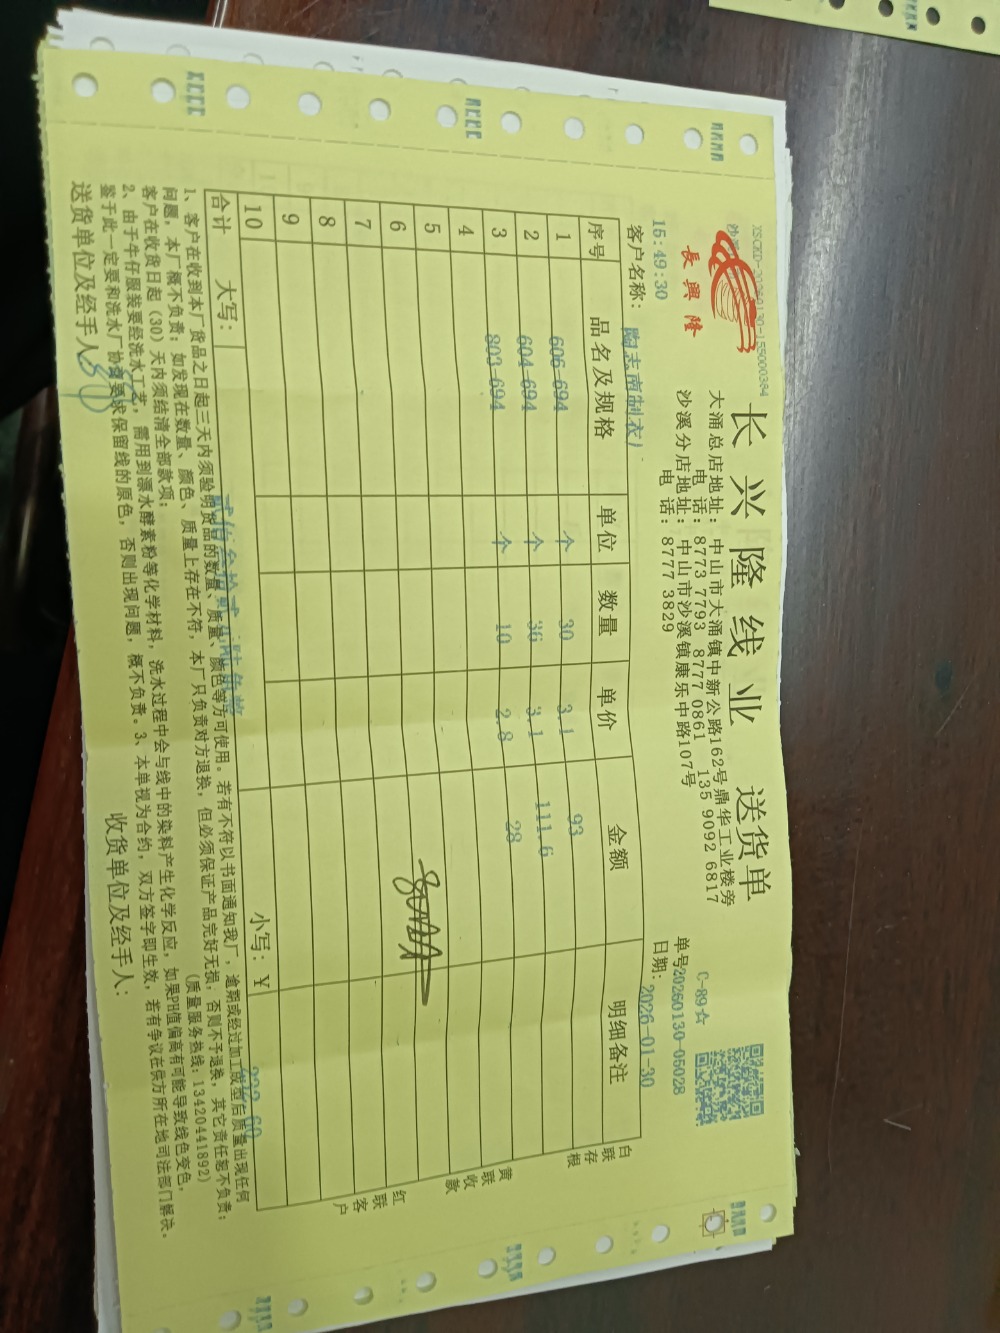 XSCKD-20260130-155000384
長興隆
长兴隆线业 送货单
C-89☆
大涌总店地址：中山市大涌镇中新公路162号鼎华工业楼旁
电话：8773 7793 8777 0861 135 9092 6817
沙溪分店地址：中山市沙溪镇康乐中路107号
电话：8777 3829
单号20260130-05028
15:49:30
日期：2026-01-30
客户名称：陶志南制衣）
序号 品名及规格 单位 数量 单价 金额 明细备注
1 606-694 个 30 3.1 93
2 604-694 个 36 3.1 111.6
3 803-694 个 10 2.8 28
4
5
6
7
8
9
10
合计 大写： 小写：￥ 232.60
白联存根
黄联收款
红联客户
1、客户在收到本厂货品之日起三天内须验明货品的数量、质量、颜色等方可使用。若有不符以书面通知我厂，逾期或经过加工成型后质量出现任何
问题，本厂概不负责；如发现在数量、颜色、质量上存在不符，本厂只负责对方退换，但必须保证产品完好无损，否则不予退换，其它责任恕不负责；
客户在收货日起（30）天内须结清全部款项； （质量服务热线：13420441892）
2、由于牛仔服装要经洗水工艺，需用到漂水酵素粉等化学材料，洗水过程中会与线中的染料产生化学反应，如果PH值偏高有可能导致线色变色，
鉴于此一定要和洗水厂协商要求保留线的原色，否则出现问题，概不负责。3、本单视为合约，双方签字即生效，若有争议在供方所在地司法部门解决。
送货单位及经手人 收货单位及经手人：